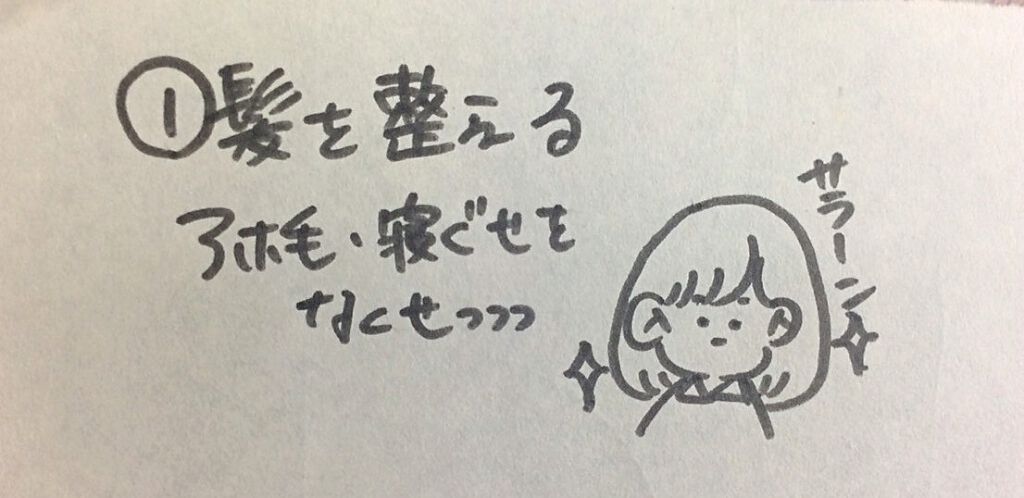 ①髪を整える
アホ毛・寝ぐせを
なくせっっっ
サラーン